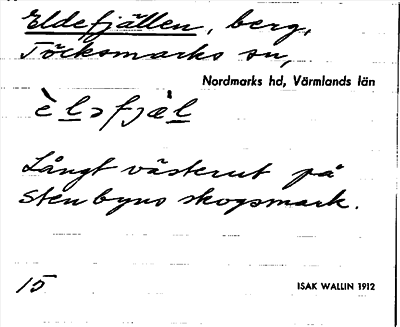 Eldefjällen, berg,
Töcksmarks sn,
Nordmarks hd, Värmlands län
èləfjæ̀l
Långt västerut på
Stenbyns skogsmark.
15
ISAK WALLIN 1912